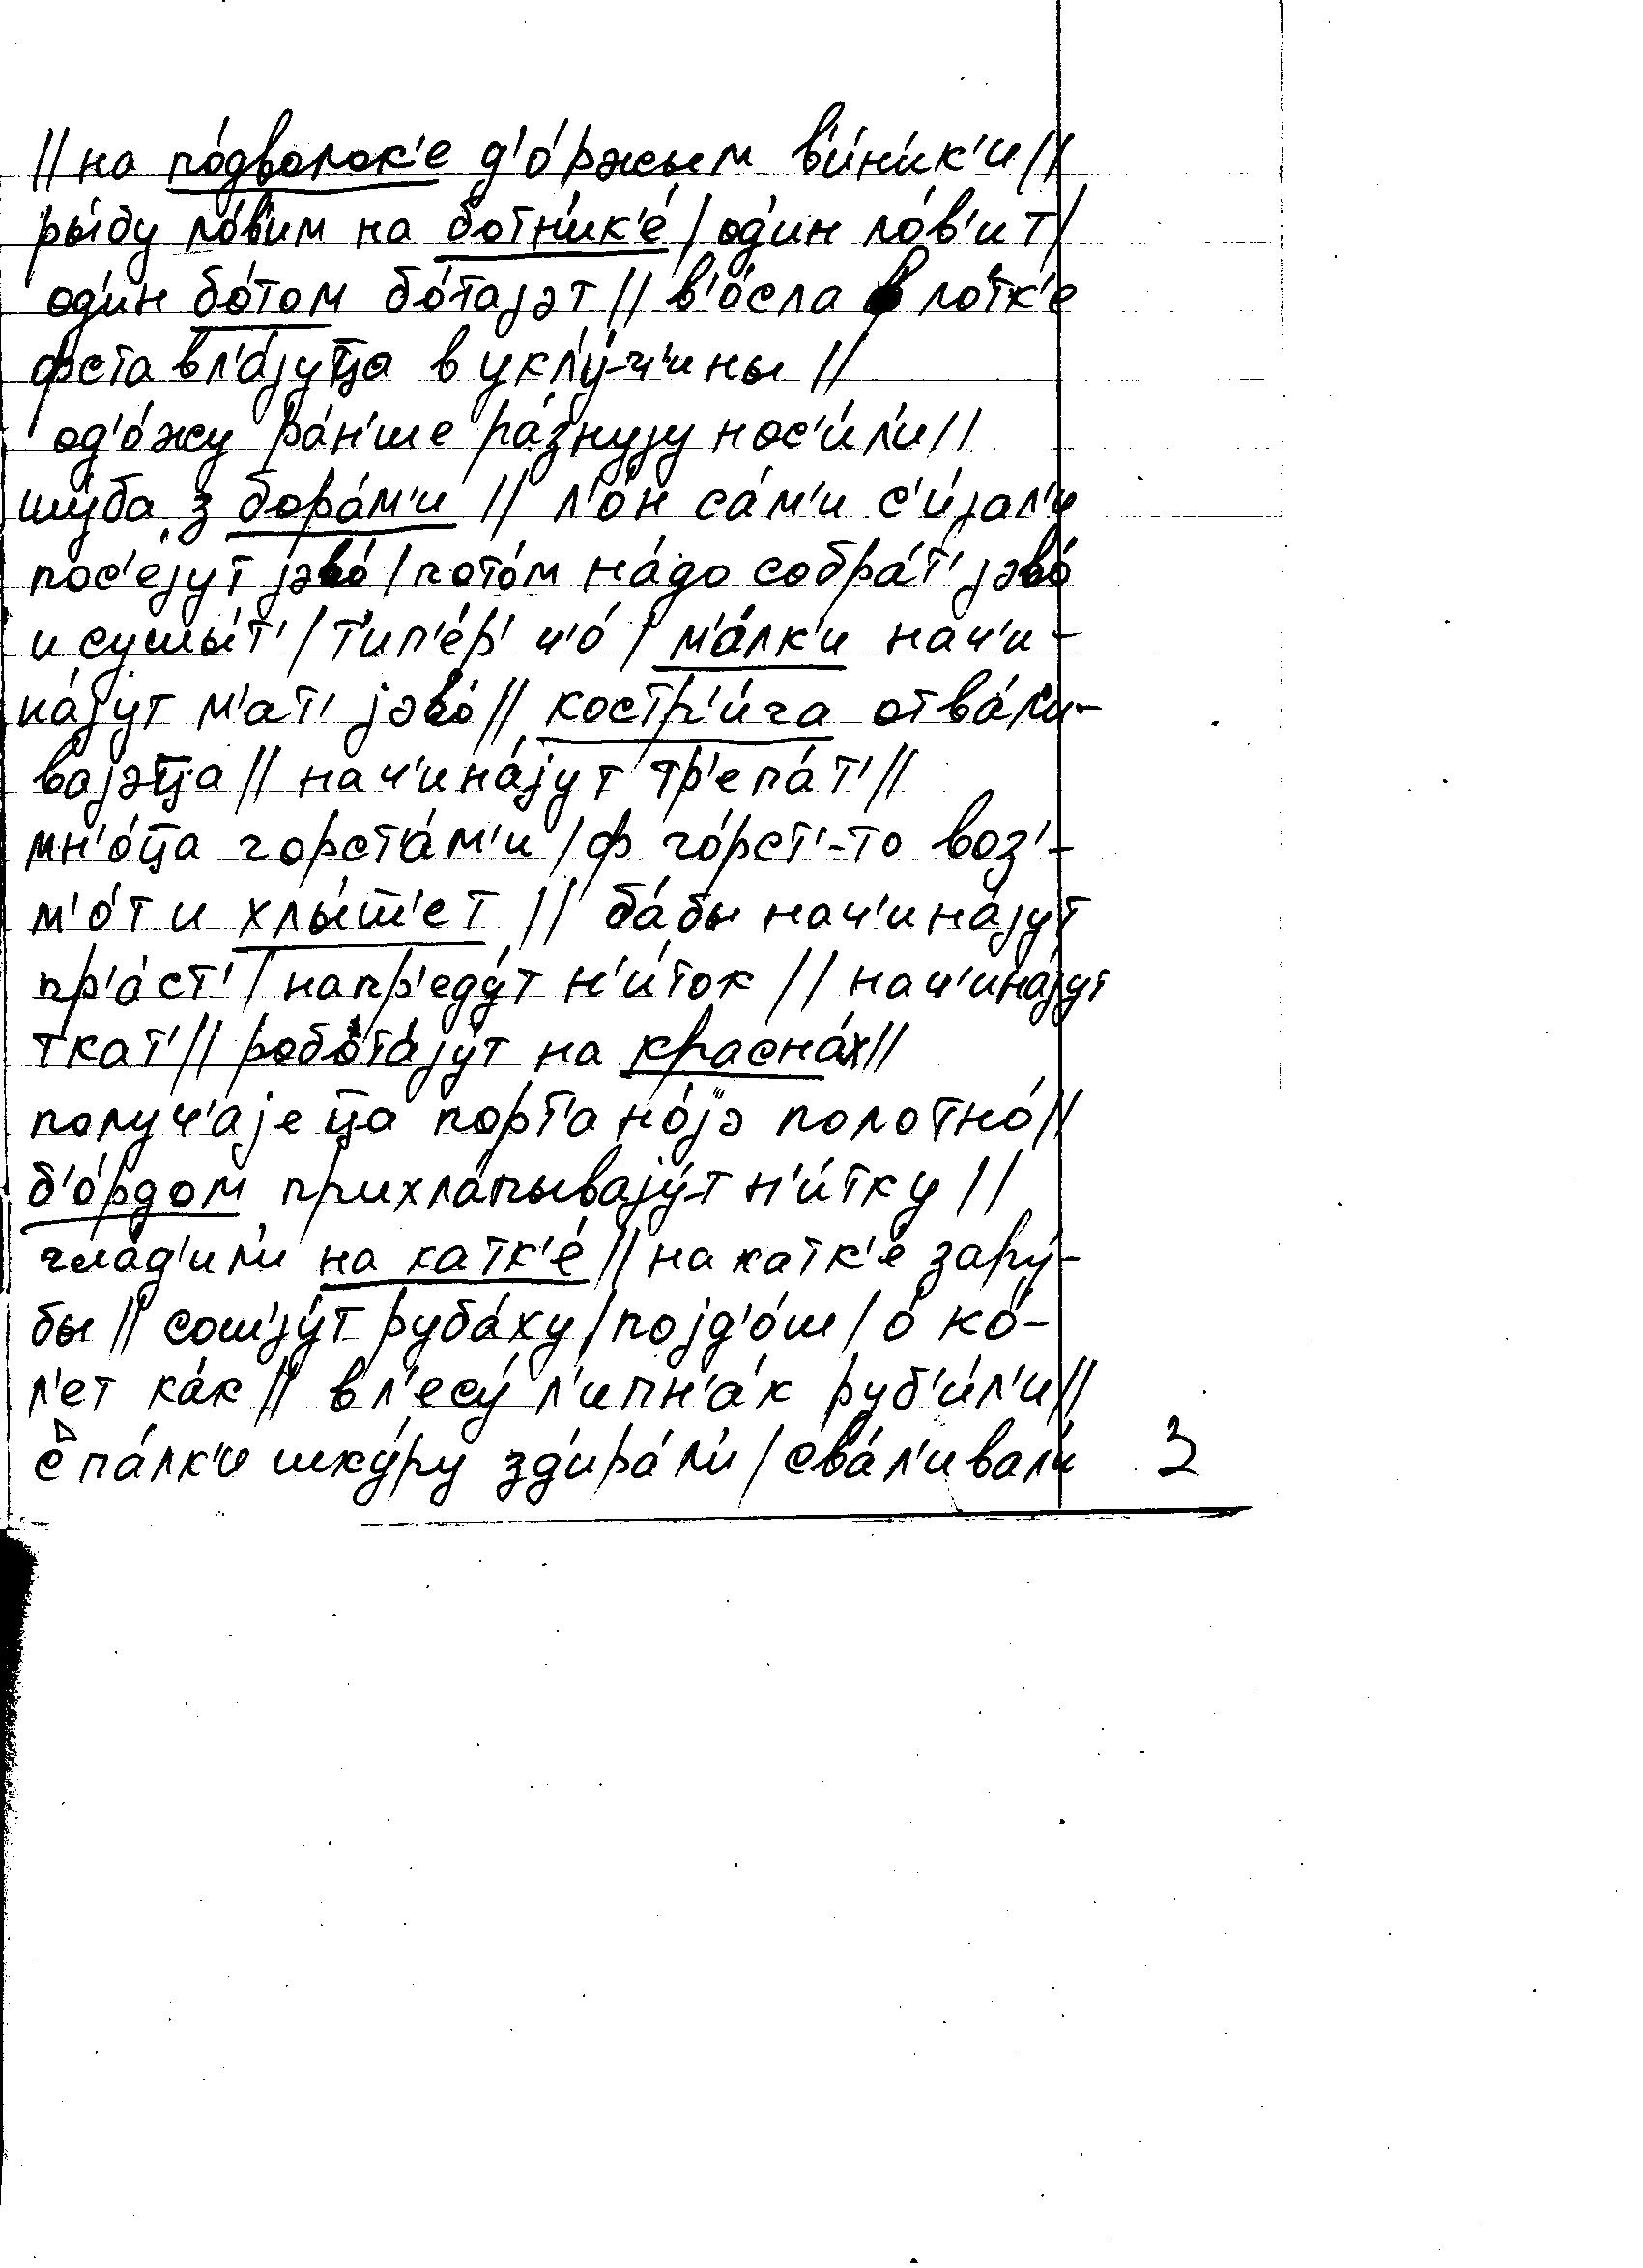 // на по́дволок'е д'о́ржым в'и́н'ик'и //
ры́бу ло́в'им на ботн'ик'е́ / од'ин ло́в'ит /
од'ин бо́том бо́таjэт // в'о́сла в лотк'е
фставл'а́jуц̅а в укл'у́ч'ины //
од'о́жу ра́н'ше ра́знуjу нос'и́л'и //
шу́ба з бора́м'и // л'о́н са́м'и с'и́jал'и
пос'е́jут jэво́ / пото́м на́до собра́т' jэво́
и сушы́т' / т'ип'е́р' ч'о́ / м'а́лк'и нач'и-
на́jут м'ат' jэво́ // костр'и́га отва́л'и-
ваjэц̅а // нач'ина́jут тр'епа́т' //
мн'о́ц̅а горст'а́м'и / ф го́рст'-то воз'-
м'о́т и хлы́ш̅'ет // ба́бы нач'ина́jут
пр'а́ст' / напр'еду́т н'и́ток // нач'ина́jут
ткат' // робо́таjу́т на красна́х //
получ'а́jец̅а порт'ано́jэ полотно́ //
б'о́рдом прихла́пываjу́т н'и́тку //
гла́д'ил'и на катк'е́ // на катк'е́ зару́-
бы // сош'jу́т руба́ху / поjд'о́ш / о́ ко́-
л'ет ка́к // в л'есу́ л'ипн'а́к руб'и́л'и //
с па́лк'и шку́ру зд'ира́л'и / сва́л'ивал'и
3